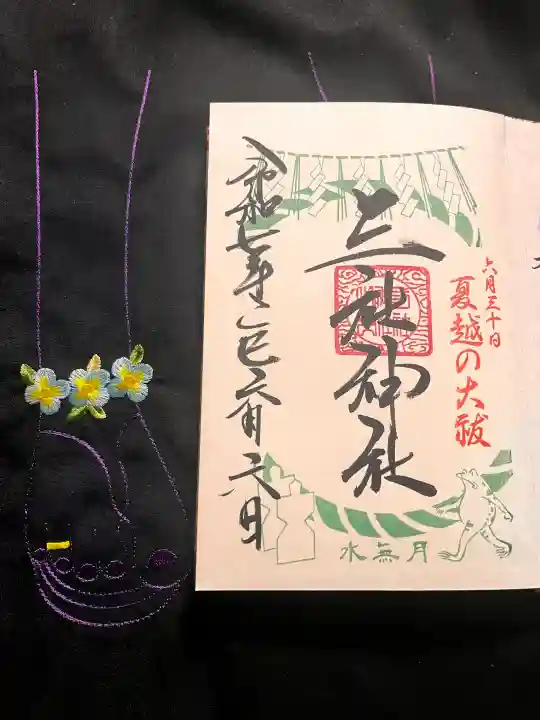 六月三十日
夏越の大祓
三社神社
令和七年乙巳六月六日
水無月